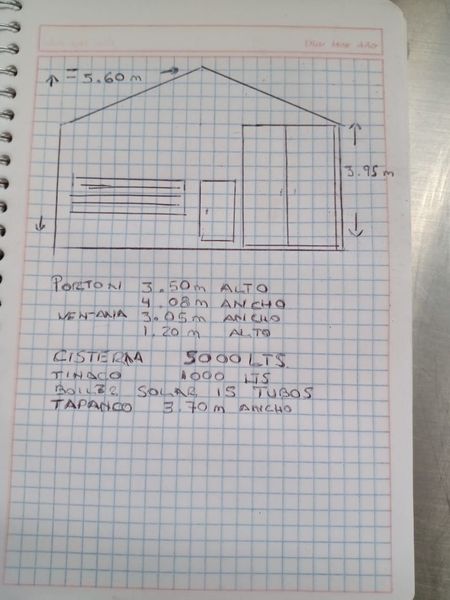 Día Mes Año
↑ = 5.60 m →
3.95 m
PORTON 3.50m ALTO
4.08m ANCHO
VENTANA 3.05m ANCHO
1.20 m ALTO
CISTERNA 5000 LTS.
TINACO 1000 LTS
BOILER SOLAR 15 TUBOS
TAPANCO 3.70m ANCHO